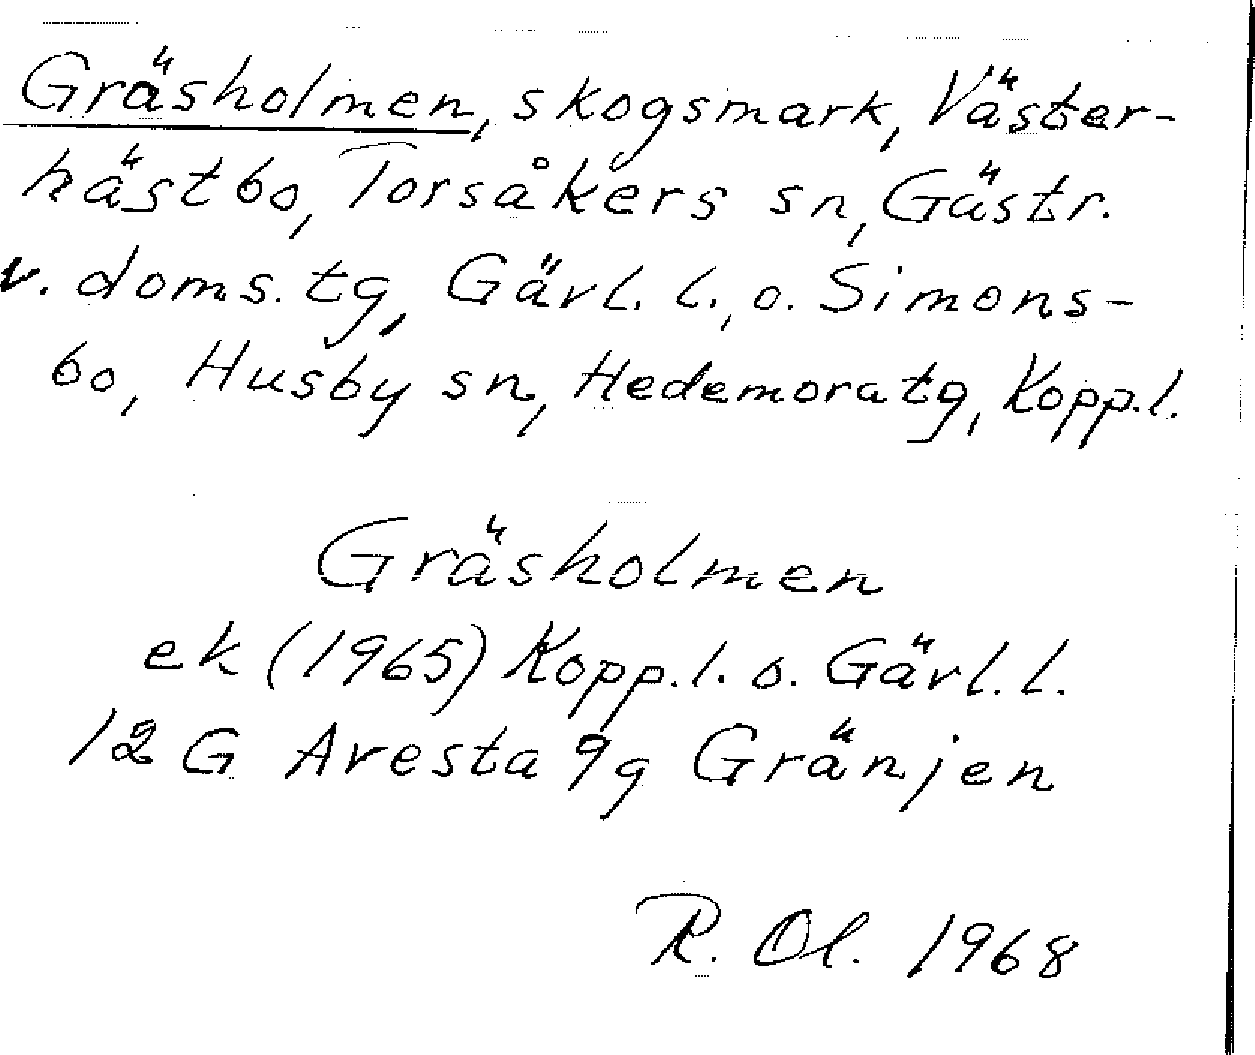 Gräsholmen, skogsmark, Väster-
hästbo, Torsåkers sn, Gästr.
v. doms. tg, Gävl. l., o. Simons-
bo, Husby sn, Hedemora tg, Kopp. l.
Gräsholmen
ek (1965) Kopp. l. o. Gävl. l.
12 G Avesta 9g Gränjen
R. Ol. 1968